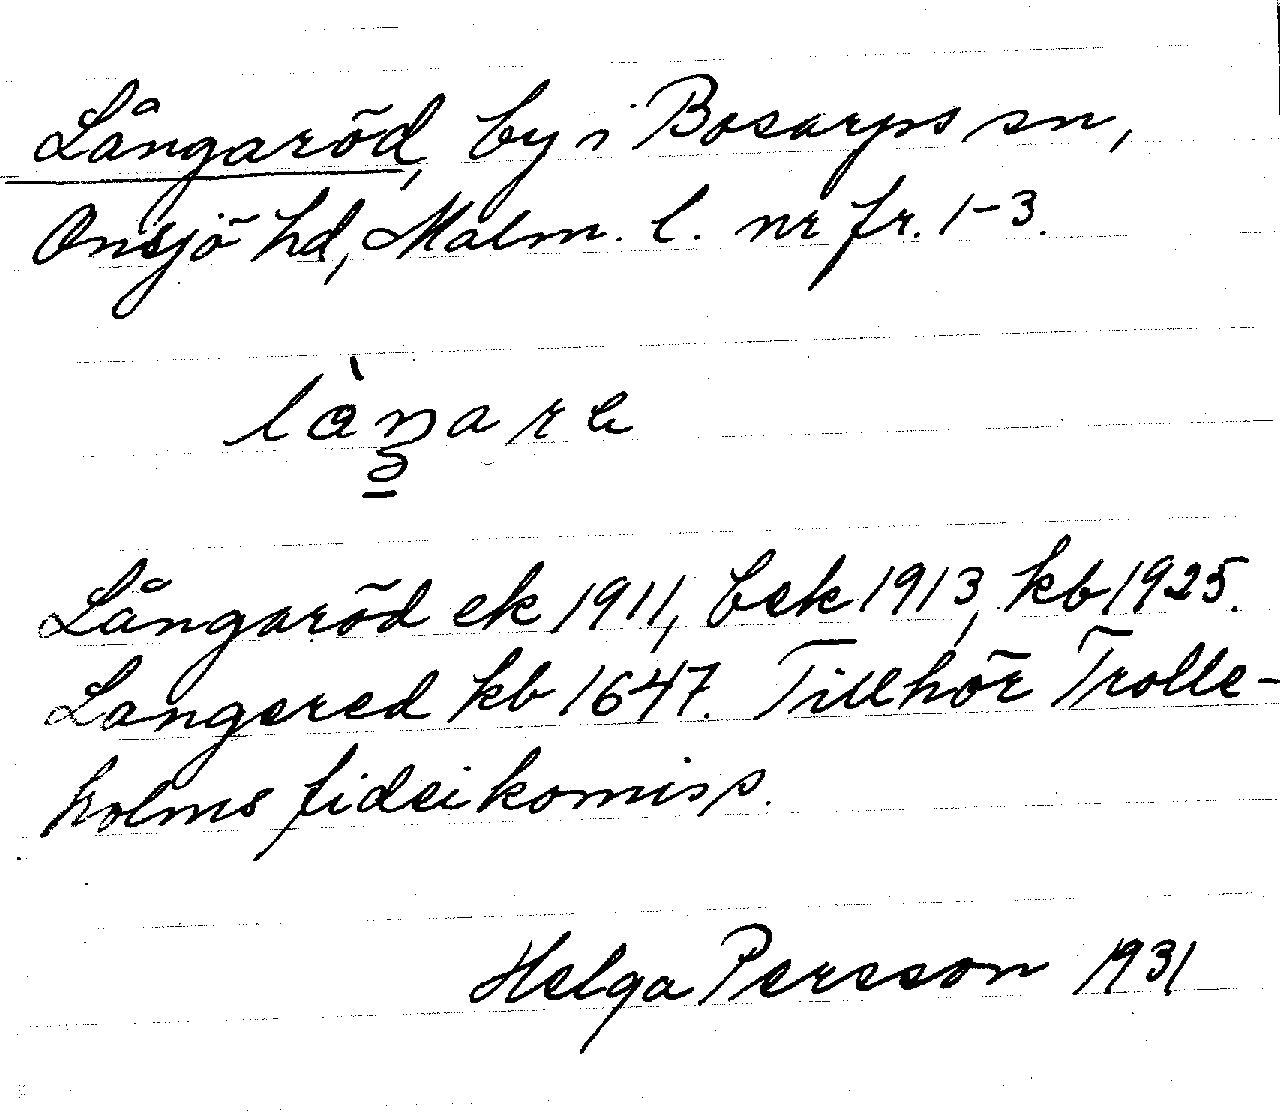 Långaröd, by i Bosarps sn,
Onsjö hd, Malm. l. nr fr. 1-3.
Långaröd ek 1911, bek 1913, kb 1925.
Langered kb 1647. Tillhör Trolle-
holms fideikomiss.
Helga Persson 1931